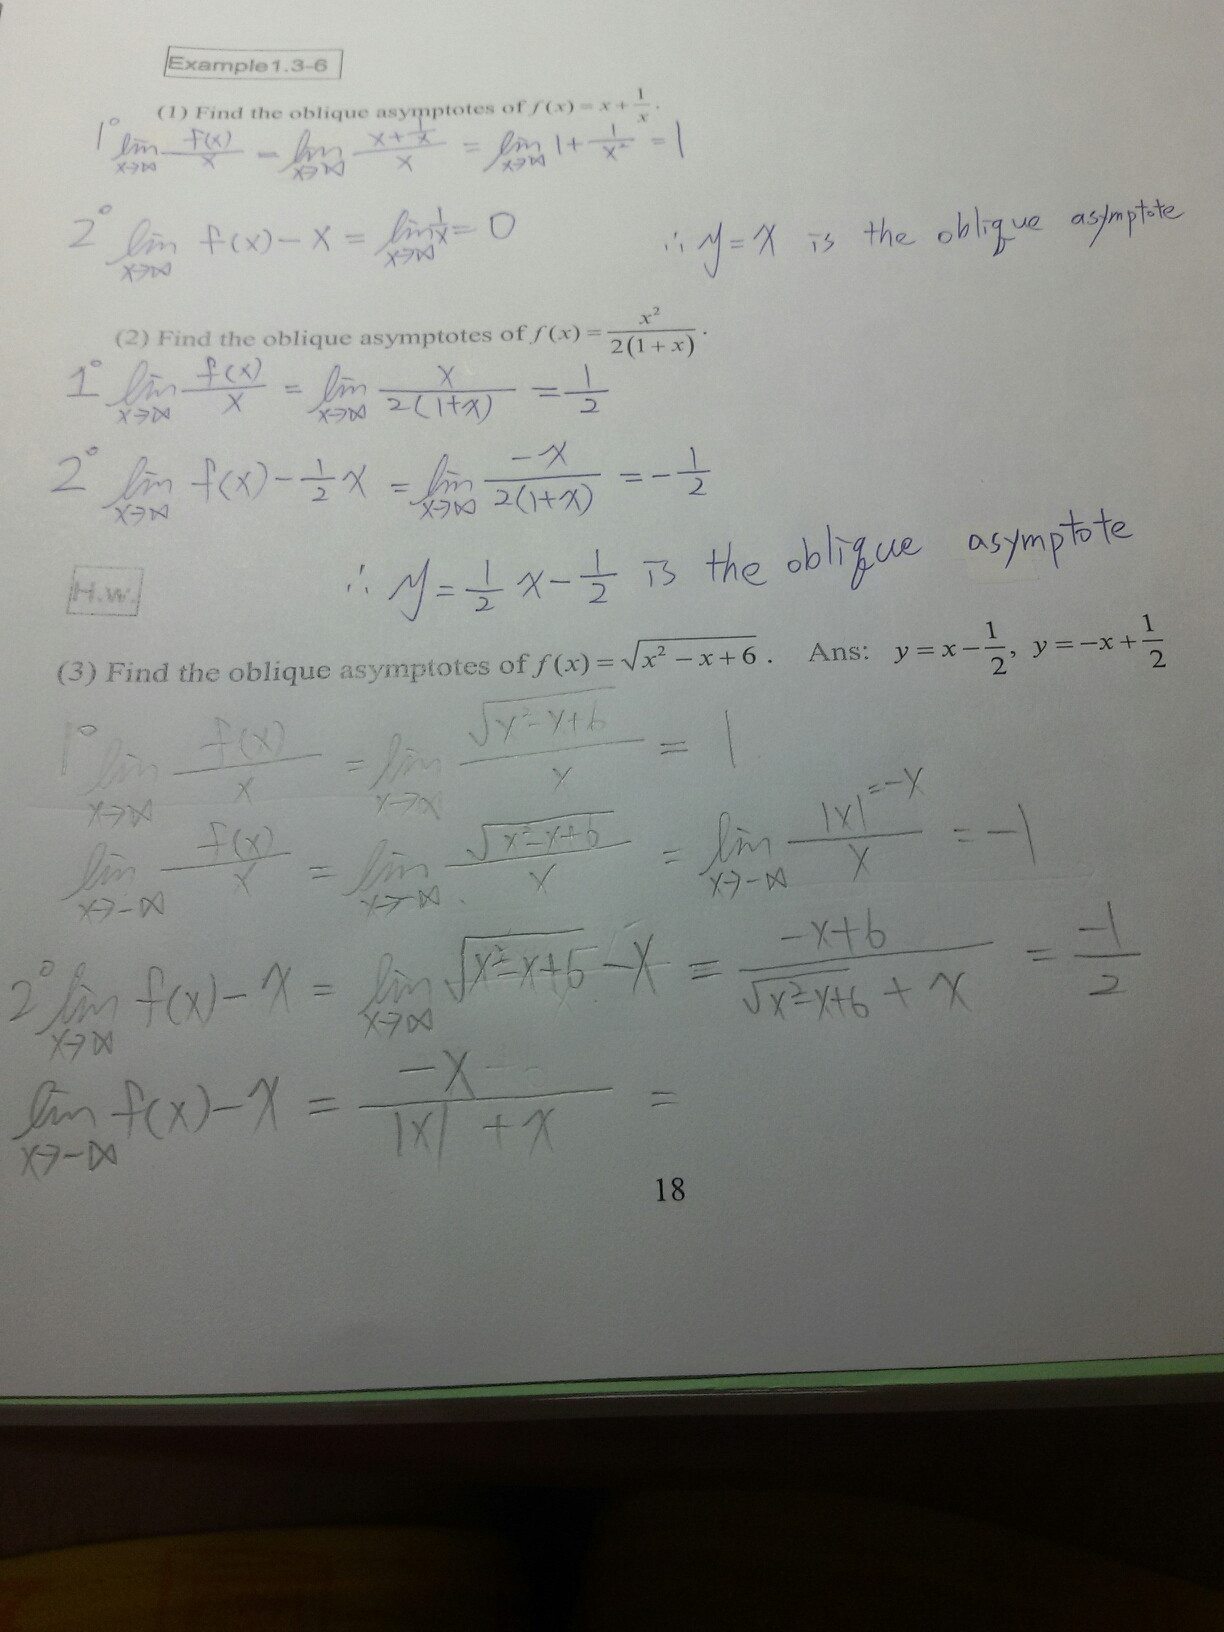 Example1.3-6
(1) Find the oblique asymptotes of f(x) = x + 1/x.
1° lim x→∞ f(x)/x = lim x→∞ (x + 1/x)/x = lim x→∞ 1 + 1/x² = 1
2° lim x→∞ f(x) - x = lim x→∞ 1/x = 0 ∴ y = x is the oblique asymptote
(2) Find the oblique asymptotes of f(x) = x²/2(1+x).
1° lim x→∞ f(x)/x = lim x→∞ x/2(1+x) = 1/2
2° lim x→∞ f(x) - 1/2 x = lim x→∞ -x/2(1+x) = -1/2
∴ y = 1/2 x - 1/2 is the oblique asymptote
H.w.
(3) Find the oblique asymptotes of f(x) = √(x² - x + 6). Ans: y = x - 1/2, y = -x + 1/2
1° lim x→∞ f(x)/x = lim x→∞ √(x²-x+6)/x = 1
lim x→-∞ f(x)/x = lim x→-∞ √(x²-x+6)/x = lim x→-∞ |x|=-x/x = -1
2° lim x→∞ f(x) - x = lim x→∞ √(x²-x+6) - x = (-x+6)/(√(x²-x+6) + x) = -1/2
lim x→-∞ f(x) - x = -x/(|x| + x) =
18